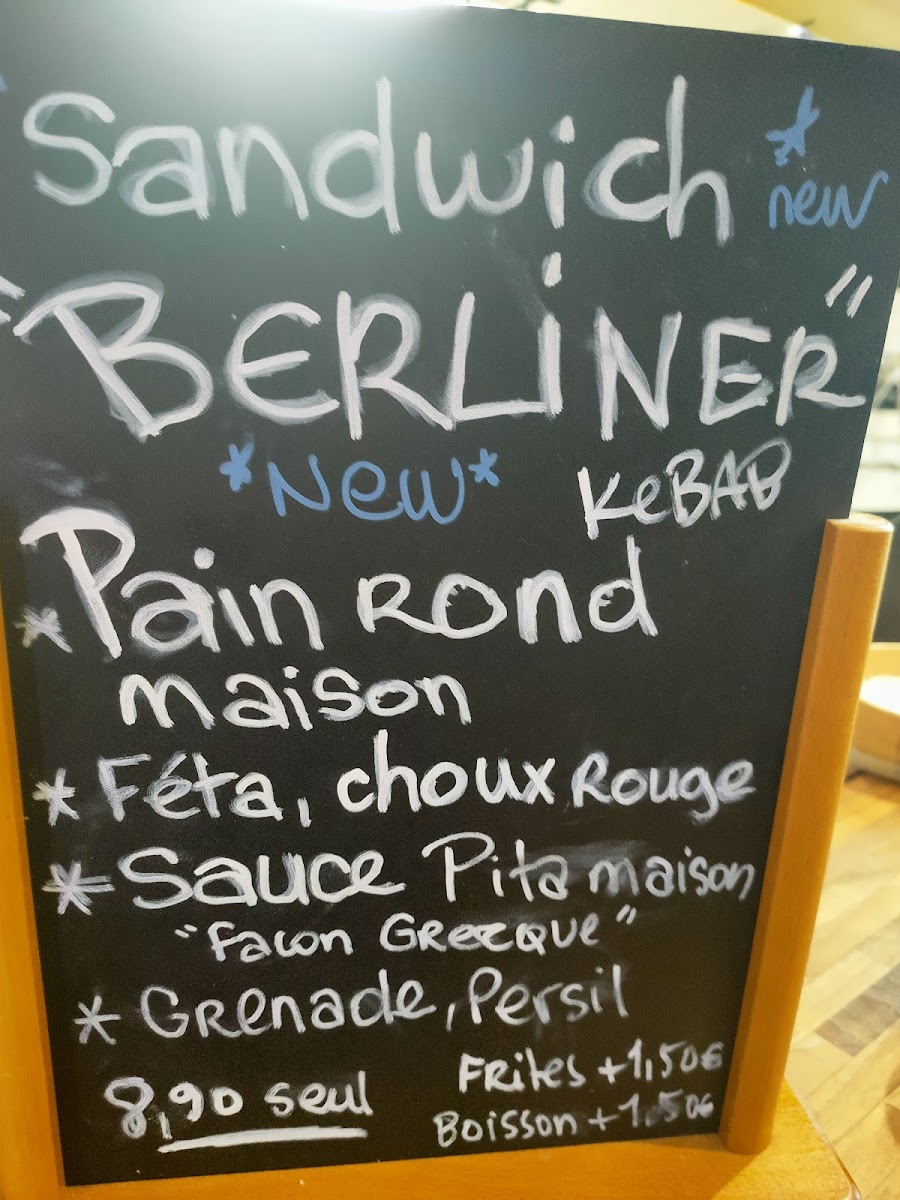 Sandwich *new
"BERLINER"
*New* KeBAB
*Pain ROND
maison
*Féta, choux Rouge
*Sauce Pita maison
"Facon GRECQUE"
*GRENADE, Persil
Frites +1,50€
8,90 seul
Boisson +1.50€